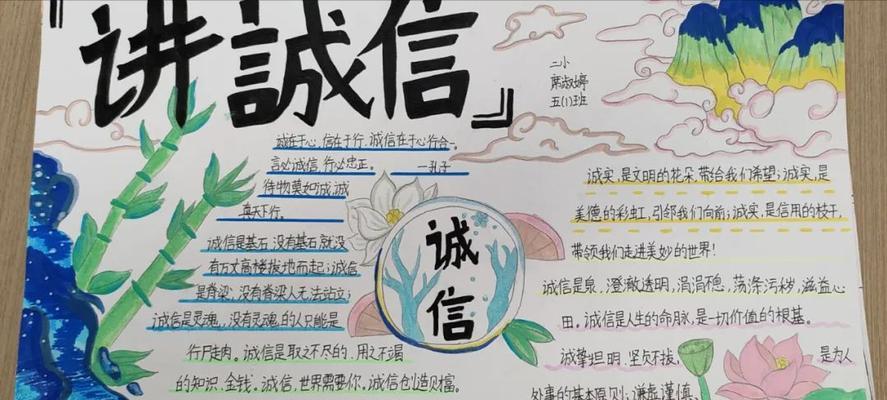 『讲誠信』
二小
席淑婷
五(1)班
诚在于心,信在于行,诚信在于心行合一
言必诚信,行必忠正。 —孔子
待物莫如诚,诚
真天下行。
诚信是基石,没有基石,就没
有万丈高楼拔地而起;诚信
是脊梁,没有脊梁人无法站立;
诚信是灵魂,没有灵魂,的人只能是
行尸走肉。诚信是取之不尽的,用之不竭
的知识、金钱。诚信,世界需要你,诚信创造财富。
诚
信
诚实,是文明的花朵,带给我们希望;诚实,是
美德的彩虹,引邻我们向前;诚实,是信用的枝干,
带领我们走进美妙的世界!
诚信是泉,澄澈透明,涓涓不息,荡涤污秽,滋益心
田。诚信是人生的命脉,是一切价值的根基。
诚挚坦明,坚贞不拔, 是为人
处事的基本原则;谦虚谨慎、